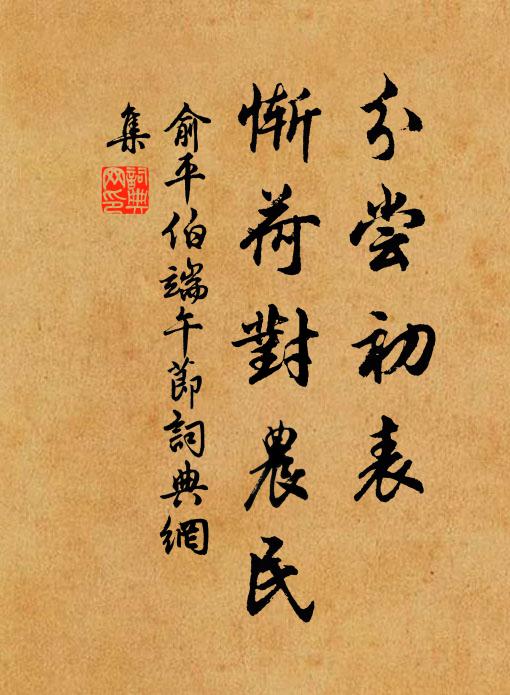 分尝初表
惭荷對農民
俞平伯端午節詞典網
集
詞典網印